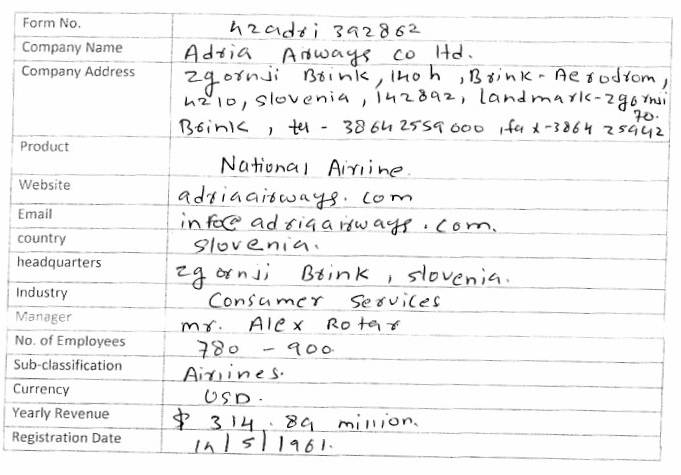 Form No. h2adri 392862
Company Name Adria Airways co ltd.
Company Address Zgornji Brink, 140h, Brink-Aerodrom,
4210, Slovenia, 142892, landmark-Zgornji
Brink, tel - 38642559000, fax-3864 25942
70.
Product National Airline.
Website adriaairways.com
Email info@adriaairways.com.
country Slovenia.
headquarters Zgornji Brink, slovenia.
Industry Consumer Services
Manager mr. Alex Rotar
No. of Employees 780 - 900
Sub-classification Airlines.
Currency USD.
Yearly Revenue $ 314.89 million.
Registration Date 14/5/1961.